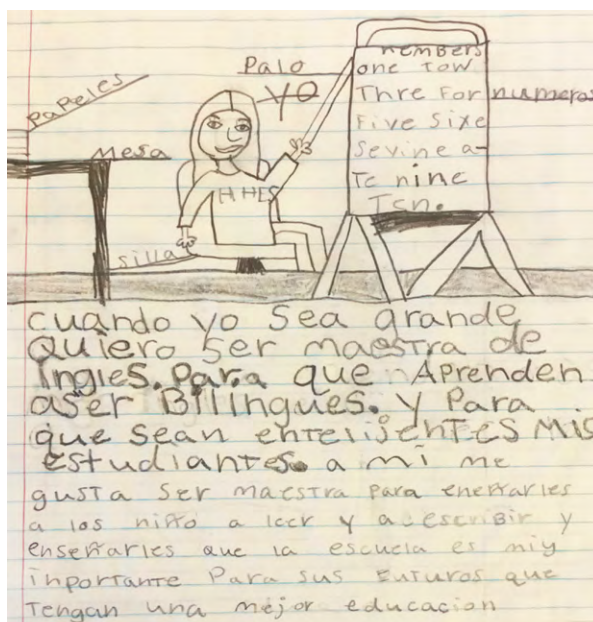 Papeles
mesa
silla
Palo
yo
HHES
nembers
one Tow
Thre For
Five Sixe
Sevine a-
Te nine
Ten.
numeros
cuando yo sea grande
quiero ser maestra de
ingles. Para que Aprenden
aser Bilingues. y Para
que sean entelijentes Mis
estudiantes. a mi me
gusta ser maestra para eneñarles
a los niño a leer y a escribir y
enseñarles que la escuela es miy
inportante Para sus futuros que
tengan una mejor educacion